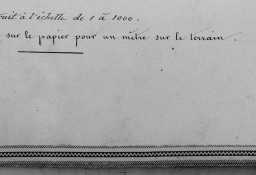 fait à l'échelle de 1 à 1000.
sur le papier pour un mètre sur le terrain.